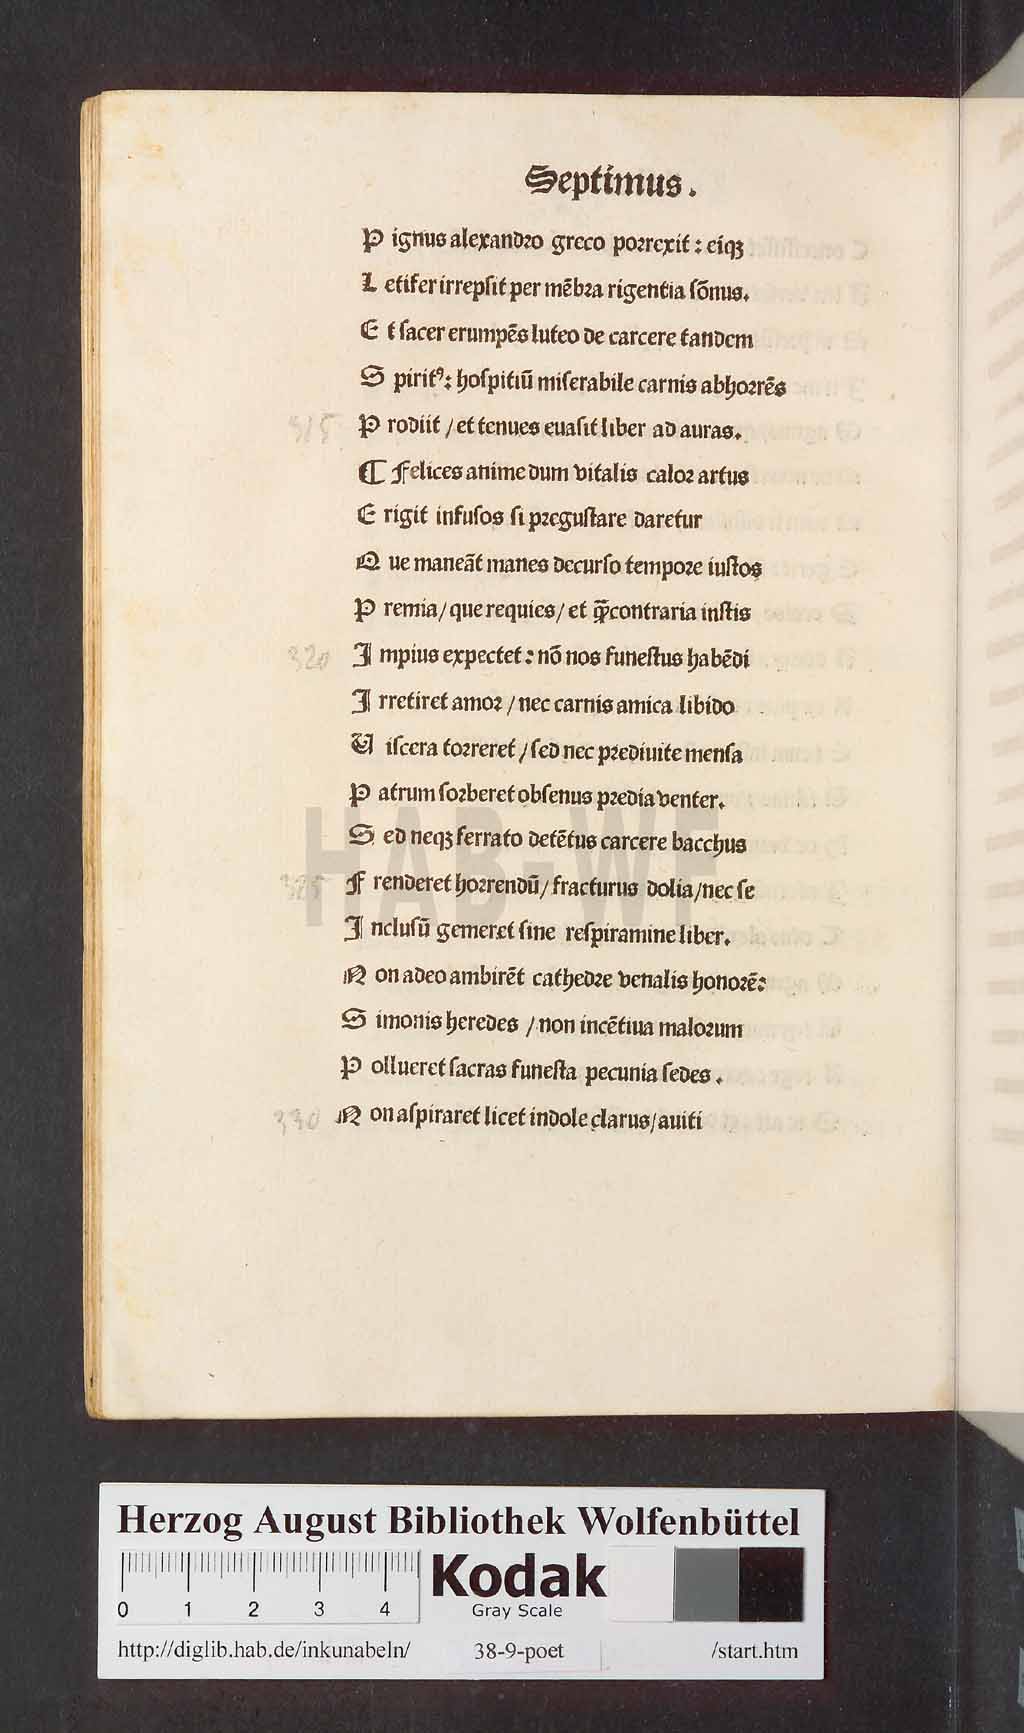 Septimus.
P ignus alexandro greco porrexit : eiqꝫ
L etifer irrepsit per mēbra rigentia sōnus.
E t sacer erumpēs luteo de carcere tandem
S piritꝰ: hospitiū miserabile carnis abhorrēs
315 P rodiit / et tenues euasit liber ad auras.
¶ Felices anime dum vitalis calor artus
E rigit infusos si pregustare daretur
Q ue maneāt manes decurso tempore iustos
P remia / que requies / et q̄contraria instis
320 I mpius expectet : nō nos funestus habēdi
I rretiret amor / nec carnis amica libido
V iscera torreret / sed nec prediuite mensa
P atrum sorberet obsenus predia venter.
S ed neqꝫ ferrato detētus carcere bacchus
325 F renderet horrendū / fracturus dolia / nec se
I nclusū gemeret sine respiramine liber.
N on adeo ambirēt cathedre venalis honorē:
S imonis heredes / non incētiua malorum
P ollueret sacras funesta pecunia sedes.
330 N on aspiraret licet indole clarus / auiti
HAB-WF
Herzog August Bibliothek Wolfenbüttel
0 1 2 3 4
Kodak
Gray Scale
http://diglib.hab.de/inkunabeln/ 38-9-poet /start.htm